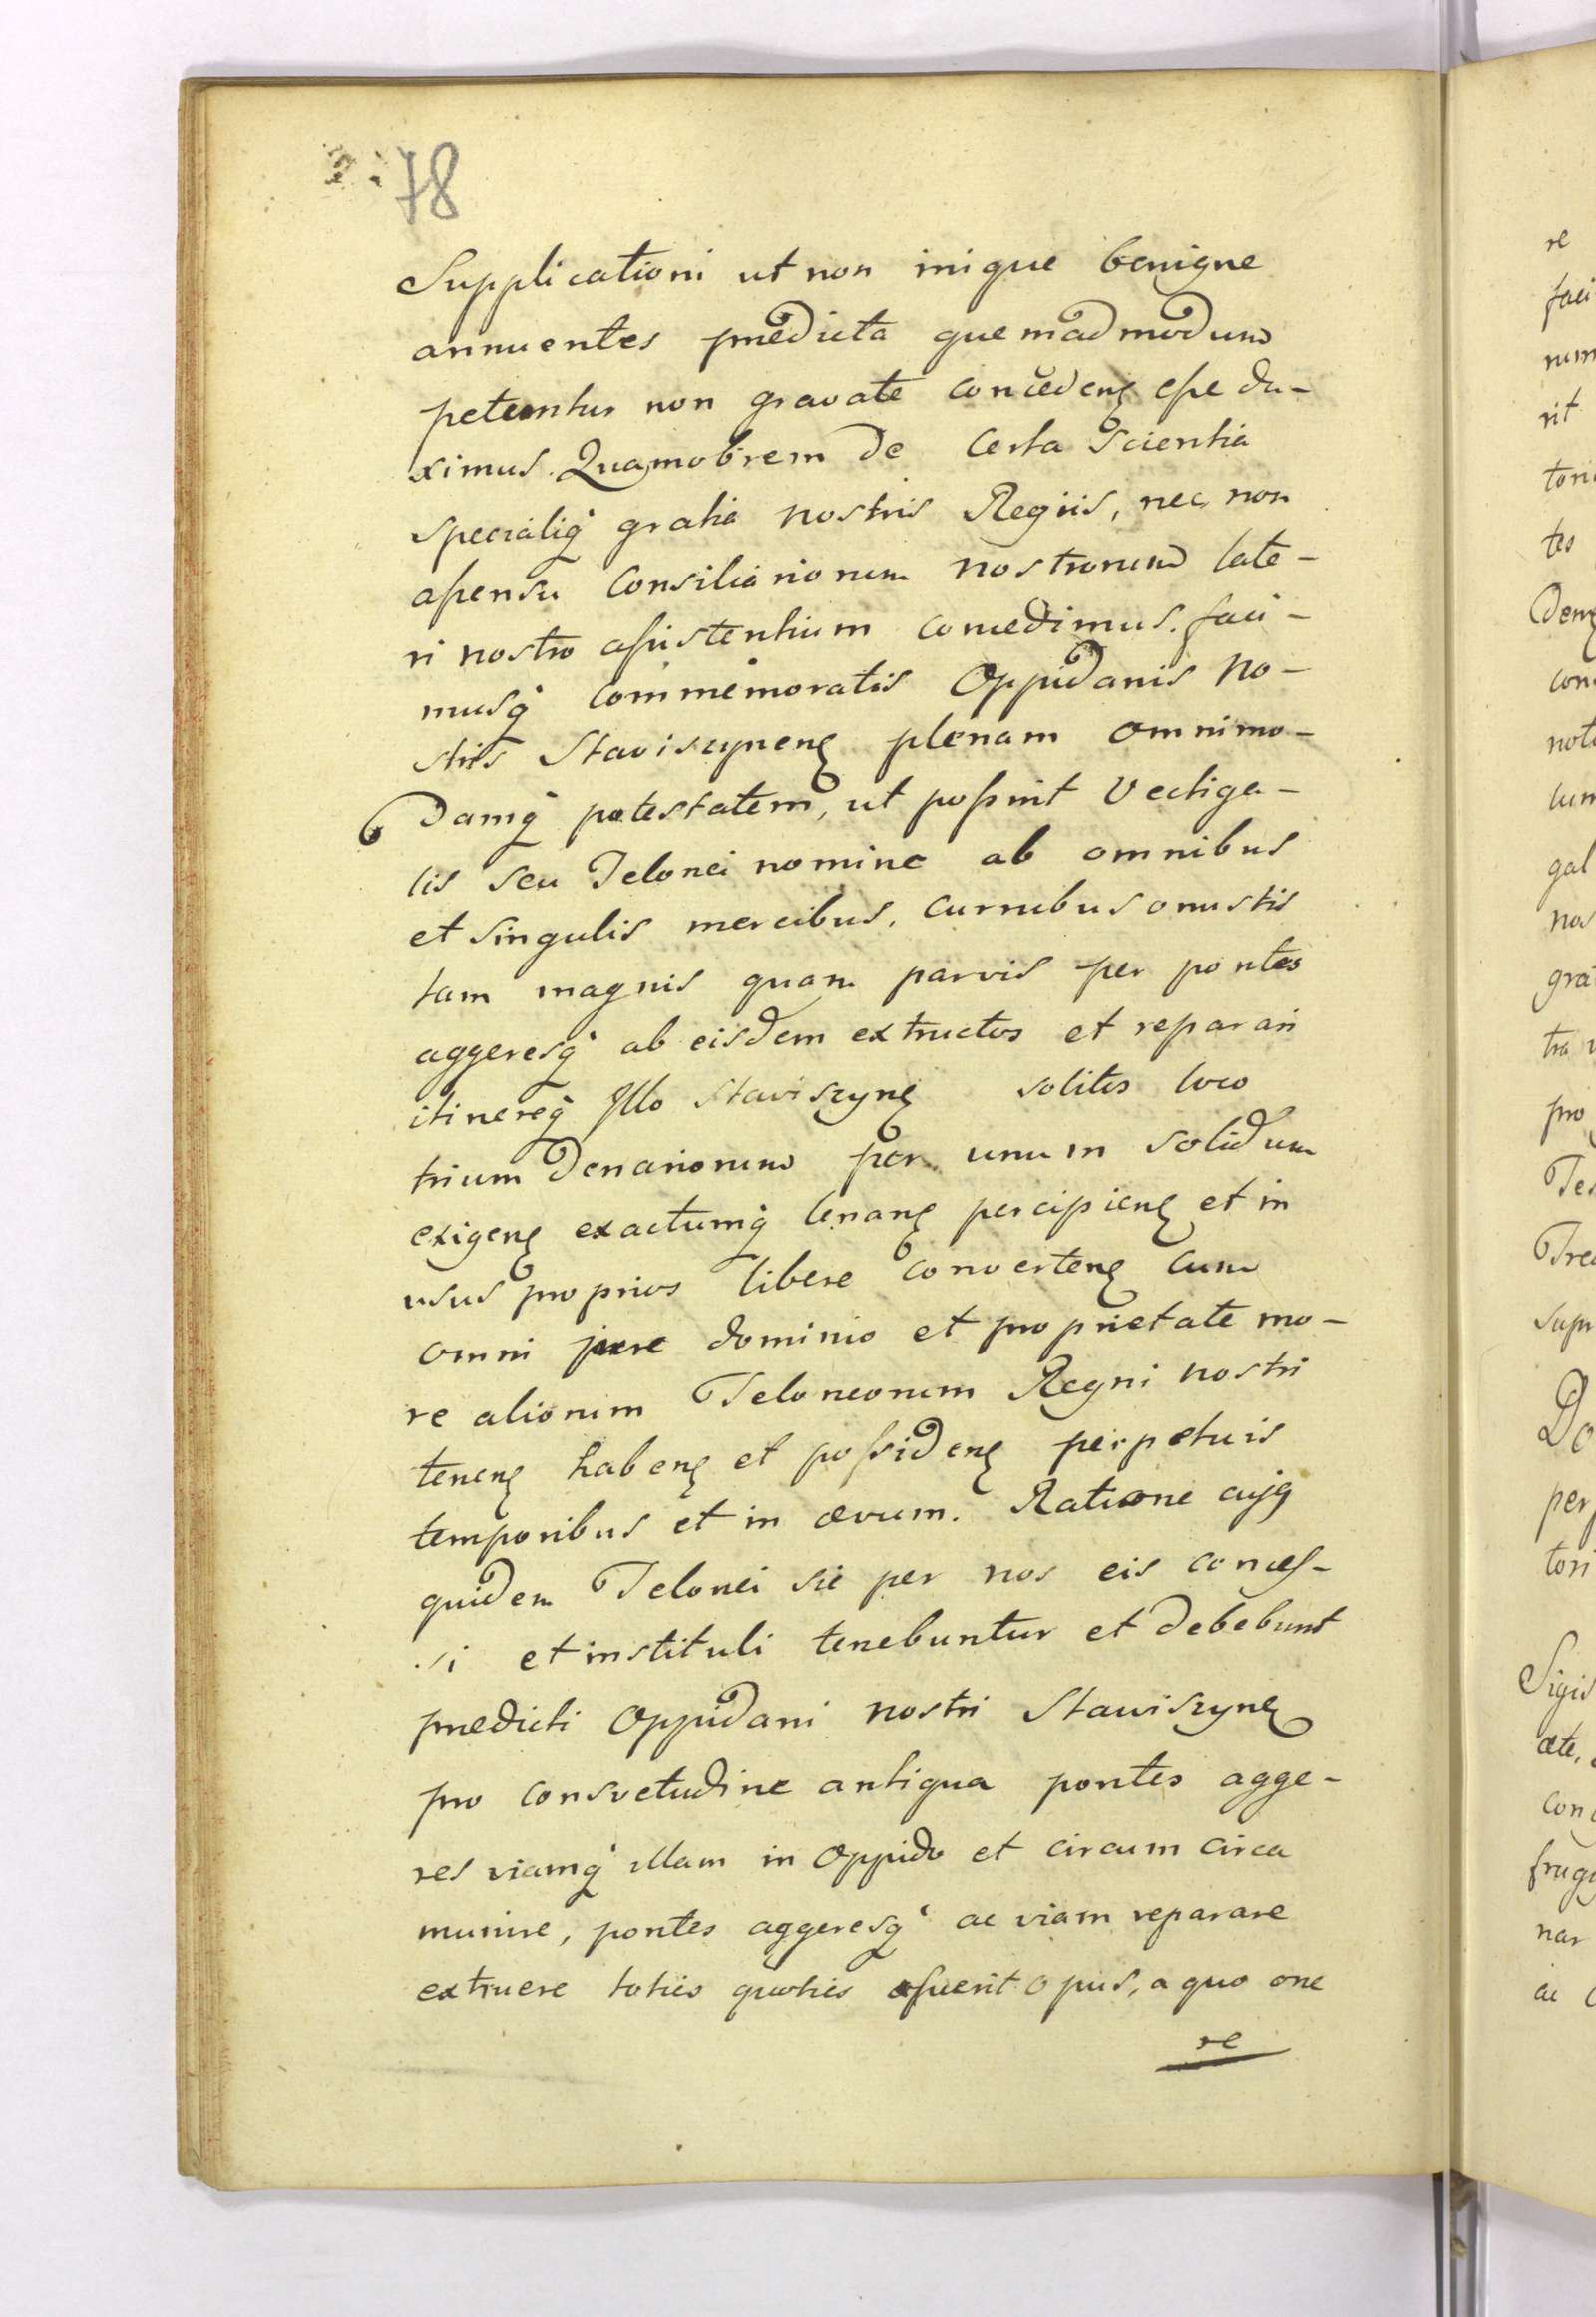 78
Supplicationi ut non inique benigne
annuentes prædicta quemadmodum
petuntur non gravate concedenę esse du-
ximus. Quamobrem de Certa Scientia
specialiq́ gratia nostris Regiis, nec non
assensu Consiliariorum nostrorum late-
ri nostro assistentium concedimus. faci-
musq́ commemoratis Oppidanis No-
stris Staviszynenę plenam omnimo-
damq́ potestatem, ut possint Vectiga-
lis seu Telonei nomine ab omnibus
et singulis mercibus, curribus onustis
tam magnis quam parvis per pontes
aggeresq́ ab eisdem extructos et reparari
itinereq́ Illo Staviszynę solitos loco
trium Denariorum per unum solidum
exigenę exactumq́ levanę percipienę et in
usus proprios libere convertenę Cum
omni jure dominio et proprietate mo-
re aliorum Teloneorum Regni nostri
tenenę habenę et possidenę perpetuis
temporibus et in ævum. Ratione cujq
quidem Telonei sic per nos eis conces-
si et instituti tenebuntur et debebunt
prædicti Oppidani nostri Staviszynę
pro consvetudine antiqua pontes agge-
res viamq́ illam in Oppido et circum circa
munire, pontes aggeresq́ ac viam reparare
extruere toties quoties fuerit opus, a quo one
re
re
faci
num
rit
tes
con
lum
gal
nos
pro
Do
per
tori
Sigis
con
nar
ac